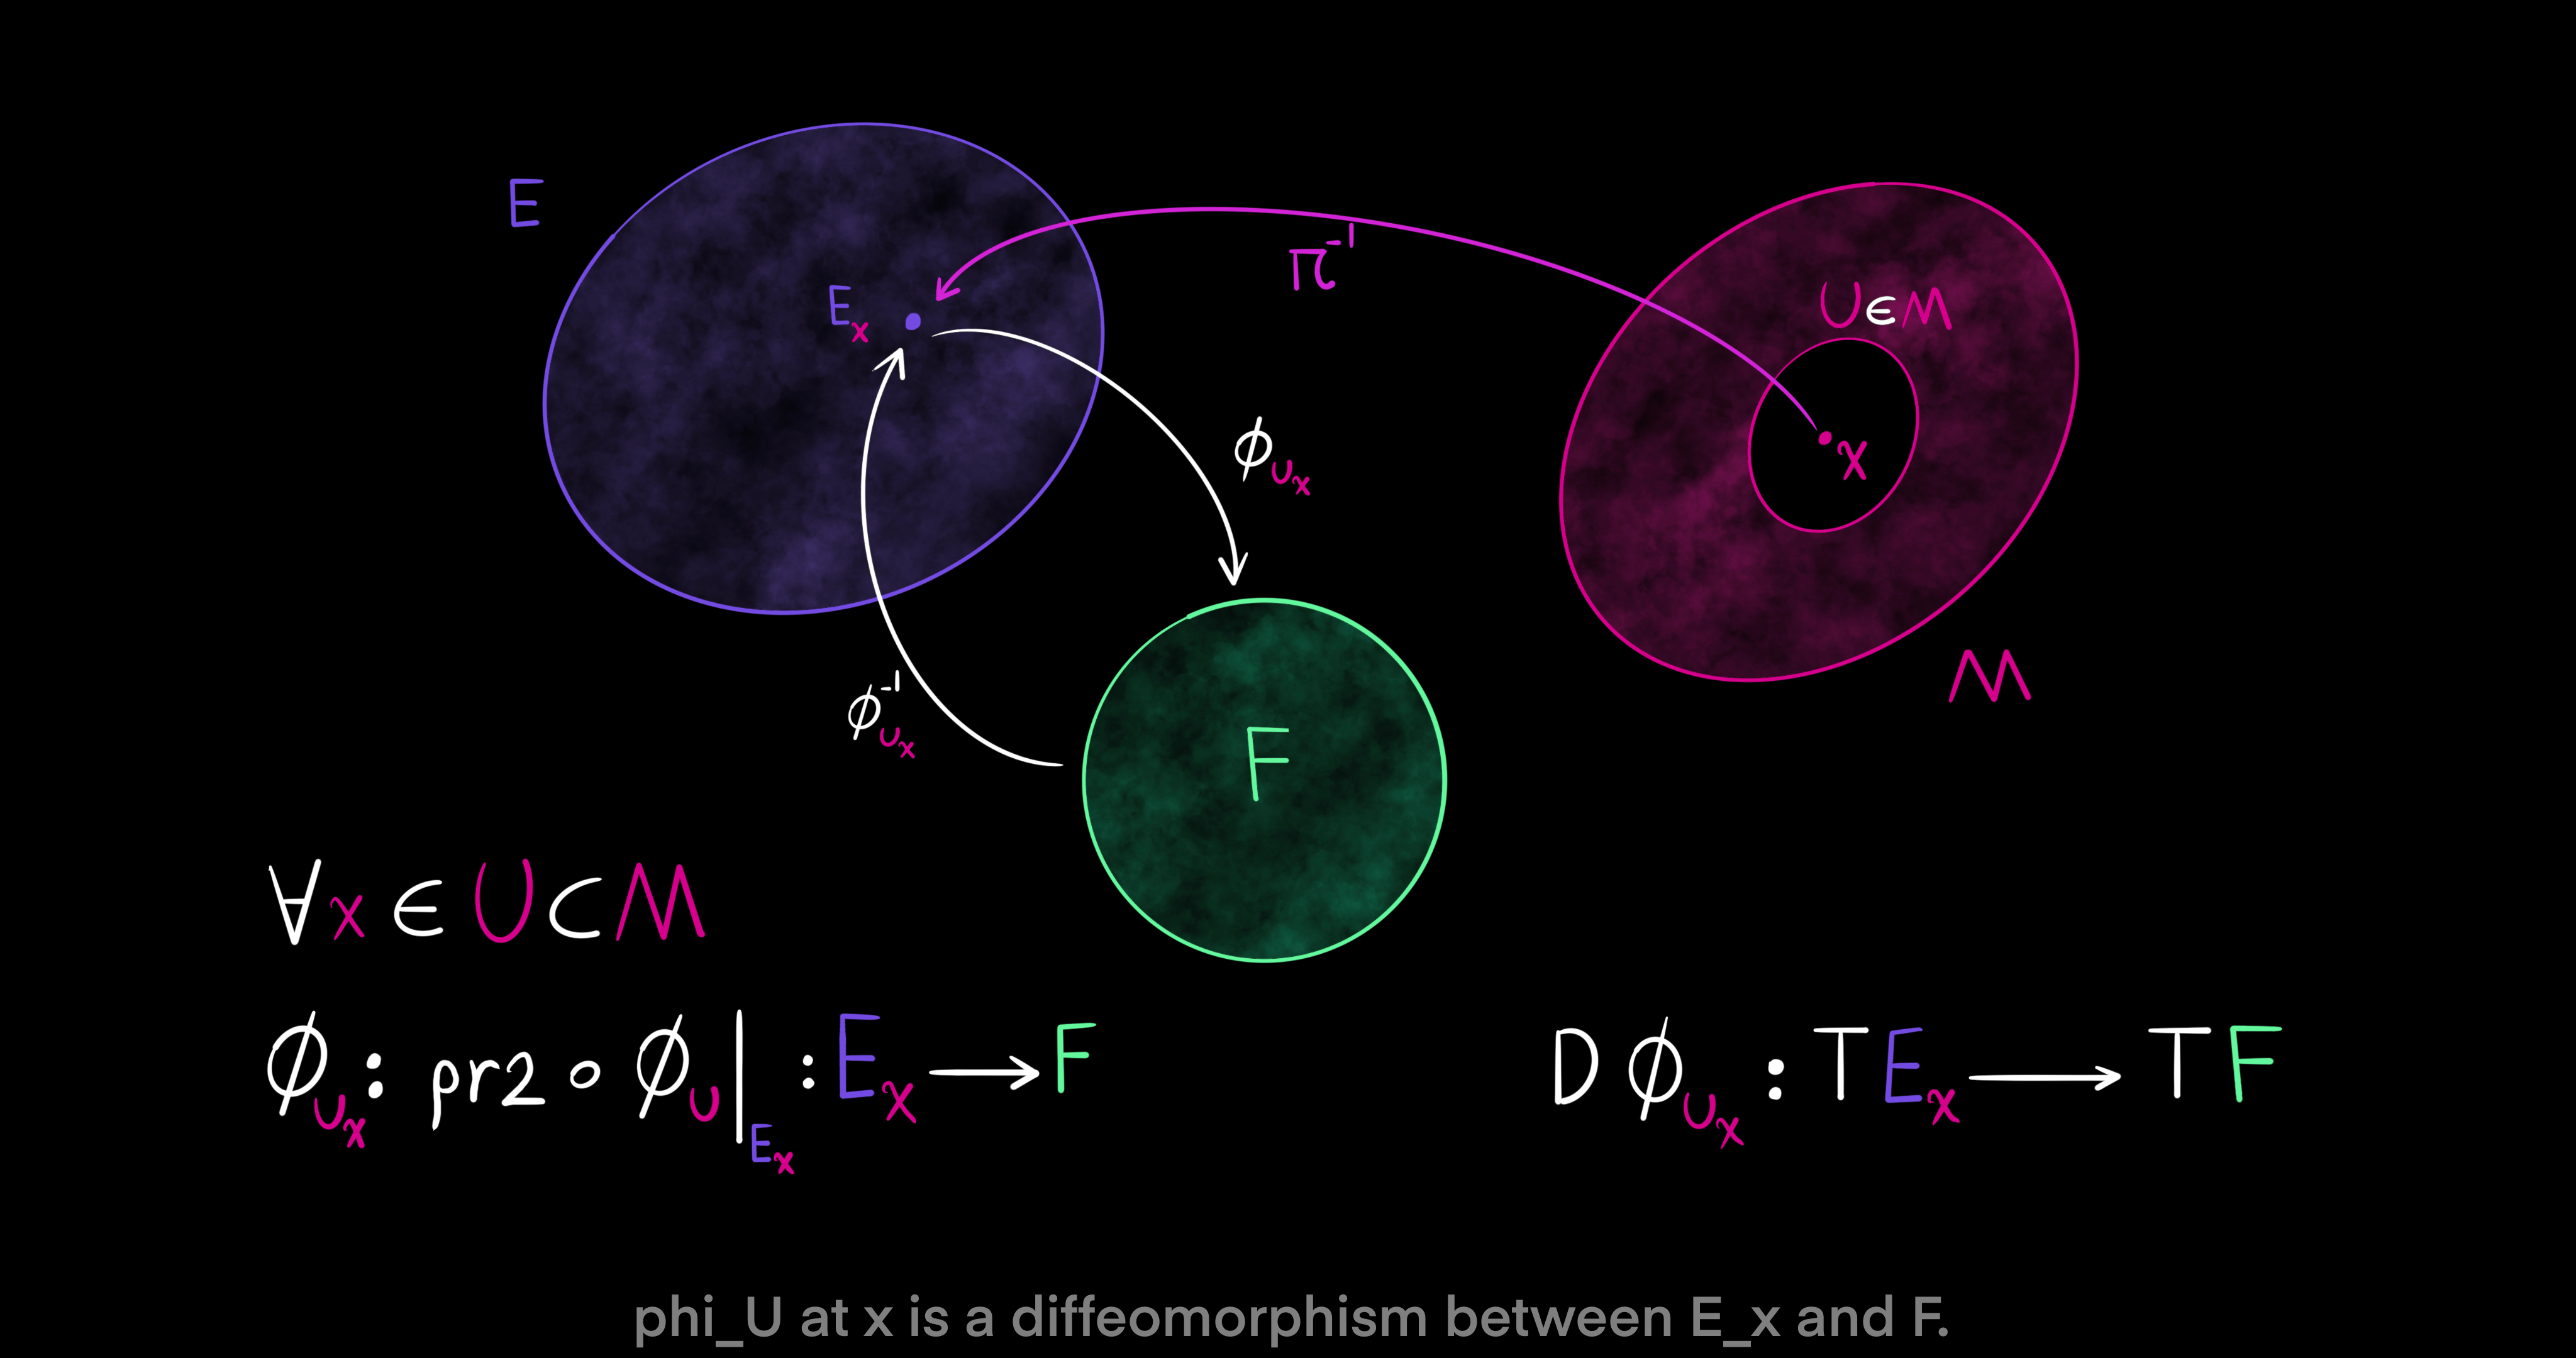 E
π⁻¹
U∈M
Eₓ
x
ϕ_{U_x}
M
ϕ⁻¹_{U_x}
F
∀x ∈ U ⊂ M
ϕ_{U_x} : pr2 ∘ ϕ_U|_{E_x} : E_x ⟶ F
D ϕ_{U_x} : T E_x ⟶ T F
phi_U at x is a diffeomorphism between E_x and F.